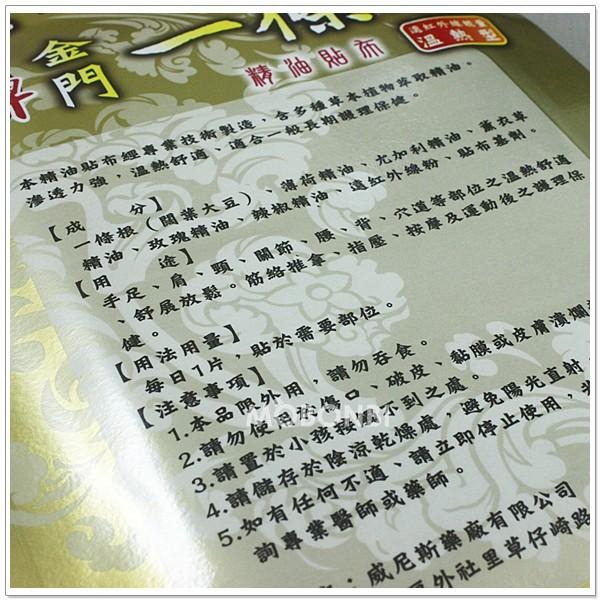 金門一條
精油貼布
遠紅外線能量
溫熱型
本精油貼布經專業技術製造,含多種草本植物萃取精油。
滲透力強,溫熱舒適,適合一般長期護理保健。
【成分】
一條根(闊葉大豆)、薄荷精油、尤加利精油、薰衣草
精油、玫瑰精油、辣椒精油、遠紅外線粉、貼布基劑。
【用途】
手足、肩、頸、關節、腰、背、穴道等部位之溫熱舒適
、舒展放鬆。筋絡推拿、指壓、按摩及運動後之護理保
健。
【用法用量】
每日1片,貼於需要部位。
【注意事項】
1.本品限外用,請勿吞食。
2.請勿使用於傷口、破皮、黏膜或皮膚潰爛
3.請置於小孩接觸不到之處。
4.請儲存於陰涼乾燥處,避免陽光直射
5.如有任何不適、請立即停止使用,
詢專業醫師或藥師。
:威尼斯藥廠有限公司
外社里草仔崎路
MOBONM